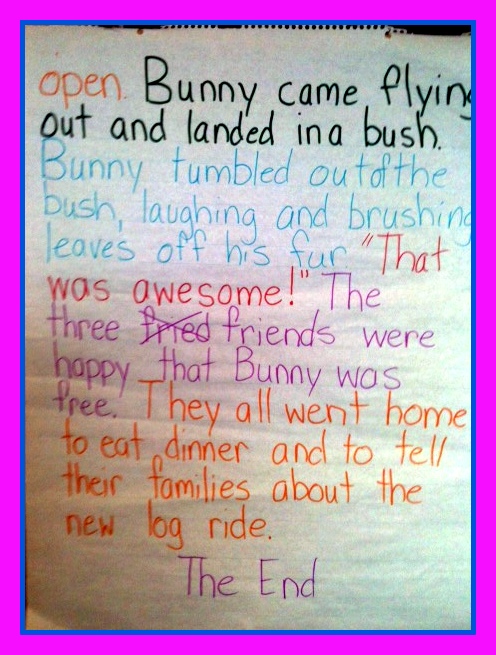 open. Bunny came flying
out and landed in a bush.
Bunny tumbled out of the
bush, laughing and brushing
leaves off his fur "That
was awesome!" The
three fried friends were
happy that Bunny was
free. They all went home
to eat dinner and to tell
their families about the
new log ride.
The End